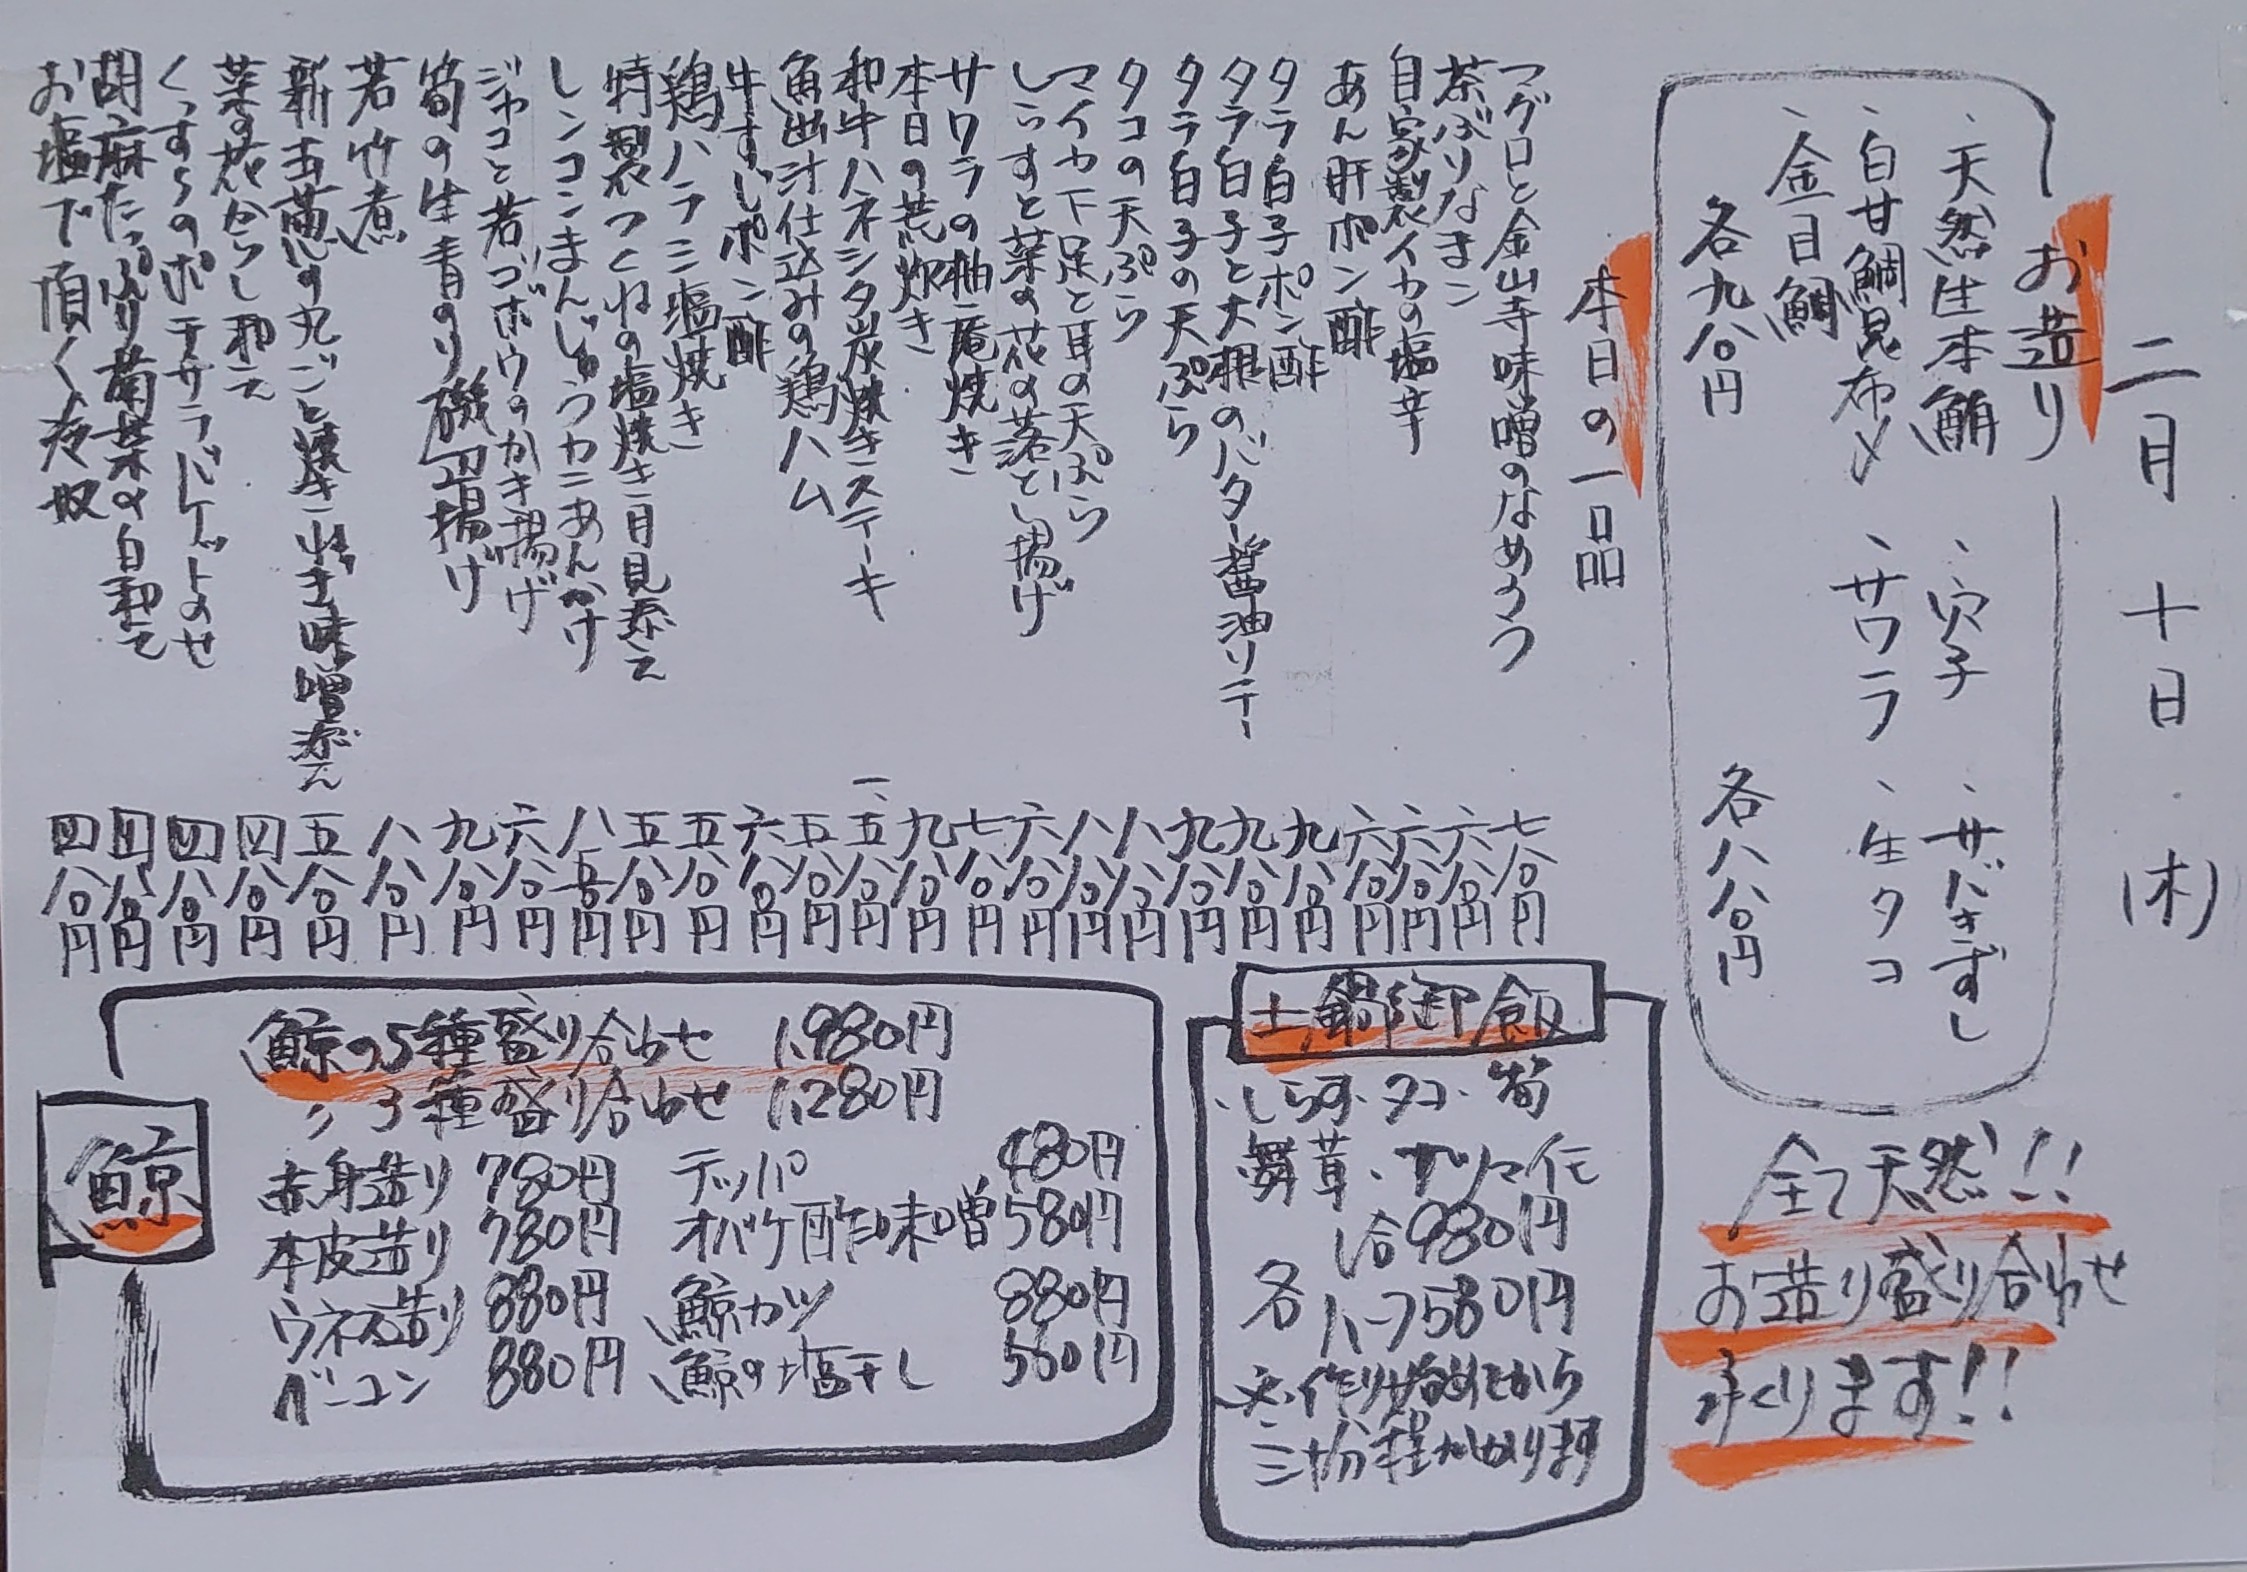 二月十日(木)
お造り
、天然生本鮪 、穴子 、サバきずし
、白甘鯛昆布〆 、サワラ 、生タコ
、金目鯛
各九八〇円 各八八〇円
全て天然!!
お造り盛り合わせ
承くります!!
本日の一品
マグロと金山寺味噌のなめろう 七八〇円
茶ぶりなまこ 六八〇円
自家製イカの塩辛 六八〇円
あん肝ポン酢 六八〇円
タラ白子ポン酢 九八〇円
タラ白子と大根のバター醤油ソテー 九八〇円
タラ白子の天ぷら 九八〇円
タコの天ぷら 八八〇円
マイカ下足と耳の天ぷら 八八〇円
しらすと菜の花の落とし揚げ 六八〇円
サワラの柚庵焼き 七八〇円
本日の荒炊き 九八〇円
和牛ハネシタ炭焼きステーキ 一、五八〇円
魚出汁仕込みの鶏ハム 五八〇円
牛すじポン酢 六八〇円
鶏ハラミ塩焼き 五八〇円
特製つくねの塩焼き月見添え 五八〇円
レンコンまんじゅうカニあんかけ 八五〇円
ジャコと若ゴボウのかき揚げ 六八〇円
筍の生青のり磯辺揚げ 九八〇円
若竹煮 八八〇円
新玉葱の丸ごと焼き 味噌添え 五八〇円
菜の花からし和え 四八〇円
くっすらのポテサラバゲットのせ 四八〇円
胡麻たっぷり菊菜の白和え 四八〇円
お塩で頂く冷奴 四八〇円
土鍋御飯
・しらす・タコ・筍
舞茸・サツマイモ
各 1合980円
ハーフ580円
※作り始めてから
三十分程かかります
鯨
鯨の5種盛り合わせ 1,980円
〃3種盛り合わせ 1,280円
赤身造り 780円 テッパ 480円
本皮造り 780円 オバケ酢味噌 580円
ウネス造り 880円 鯨カツ 880円
ベーコン 880円 鯨の塩干し 580円